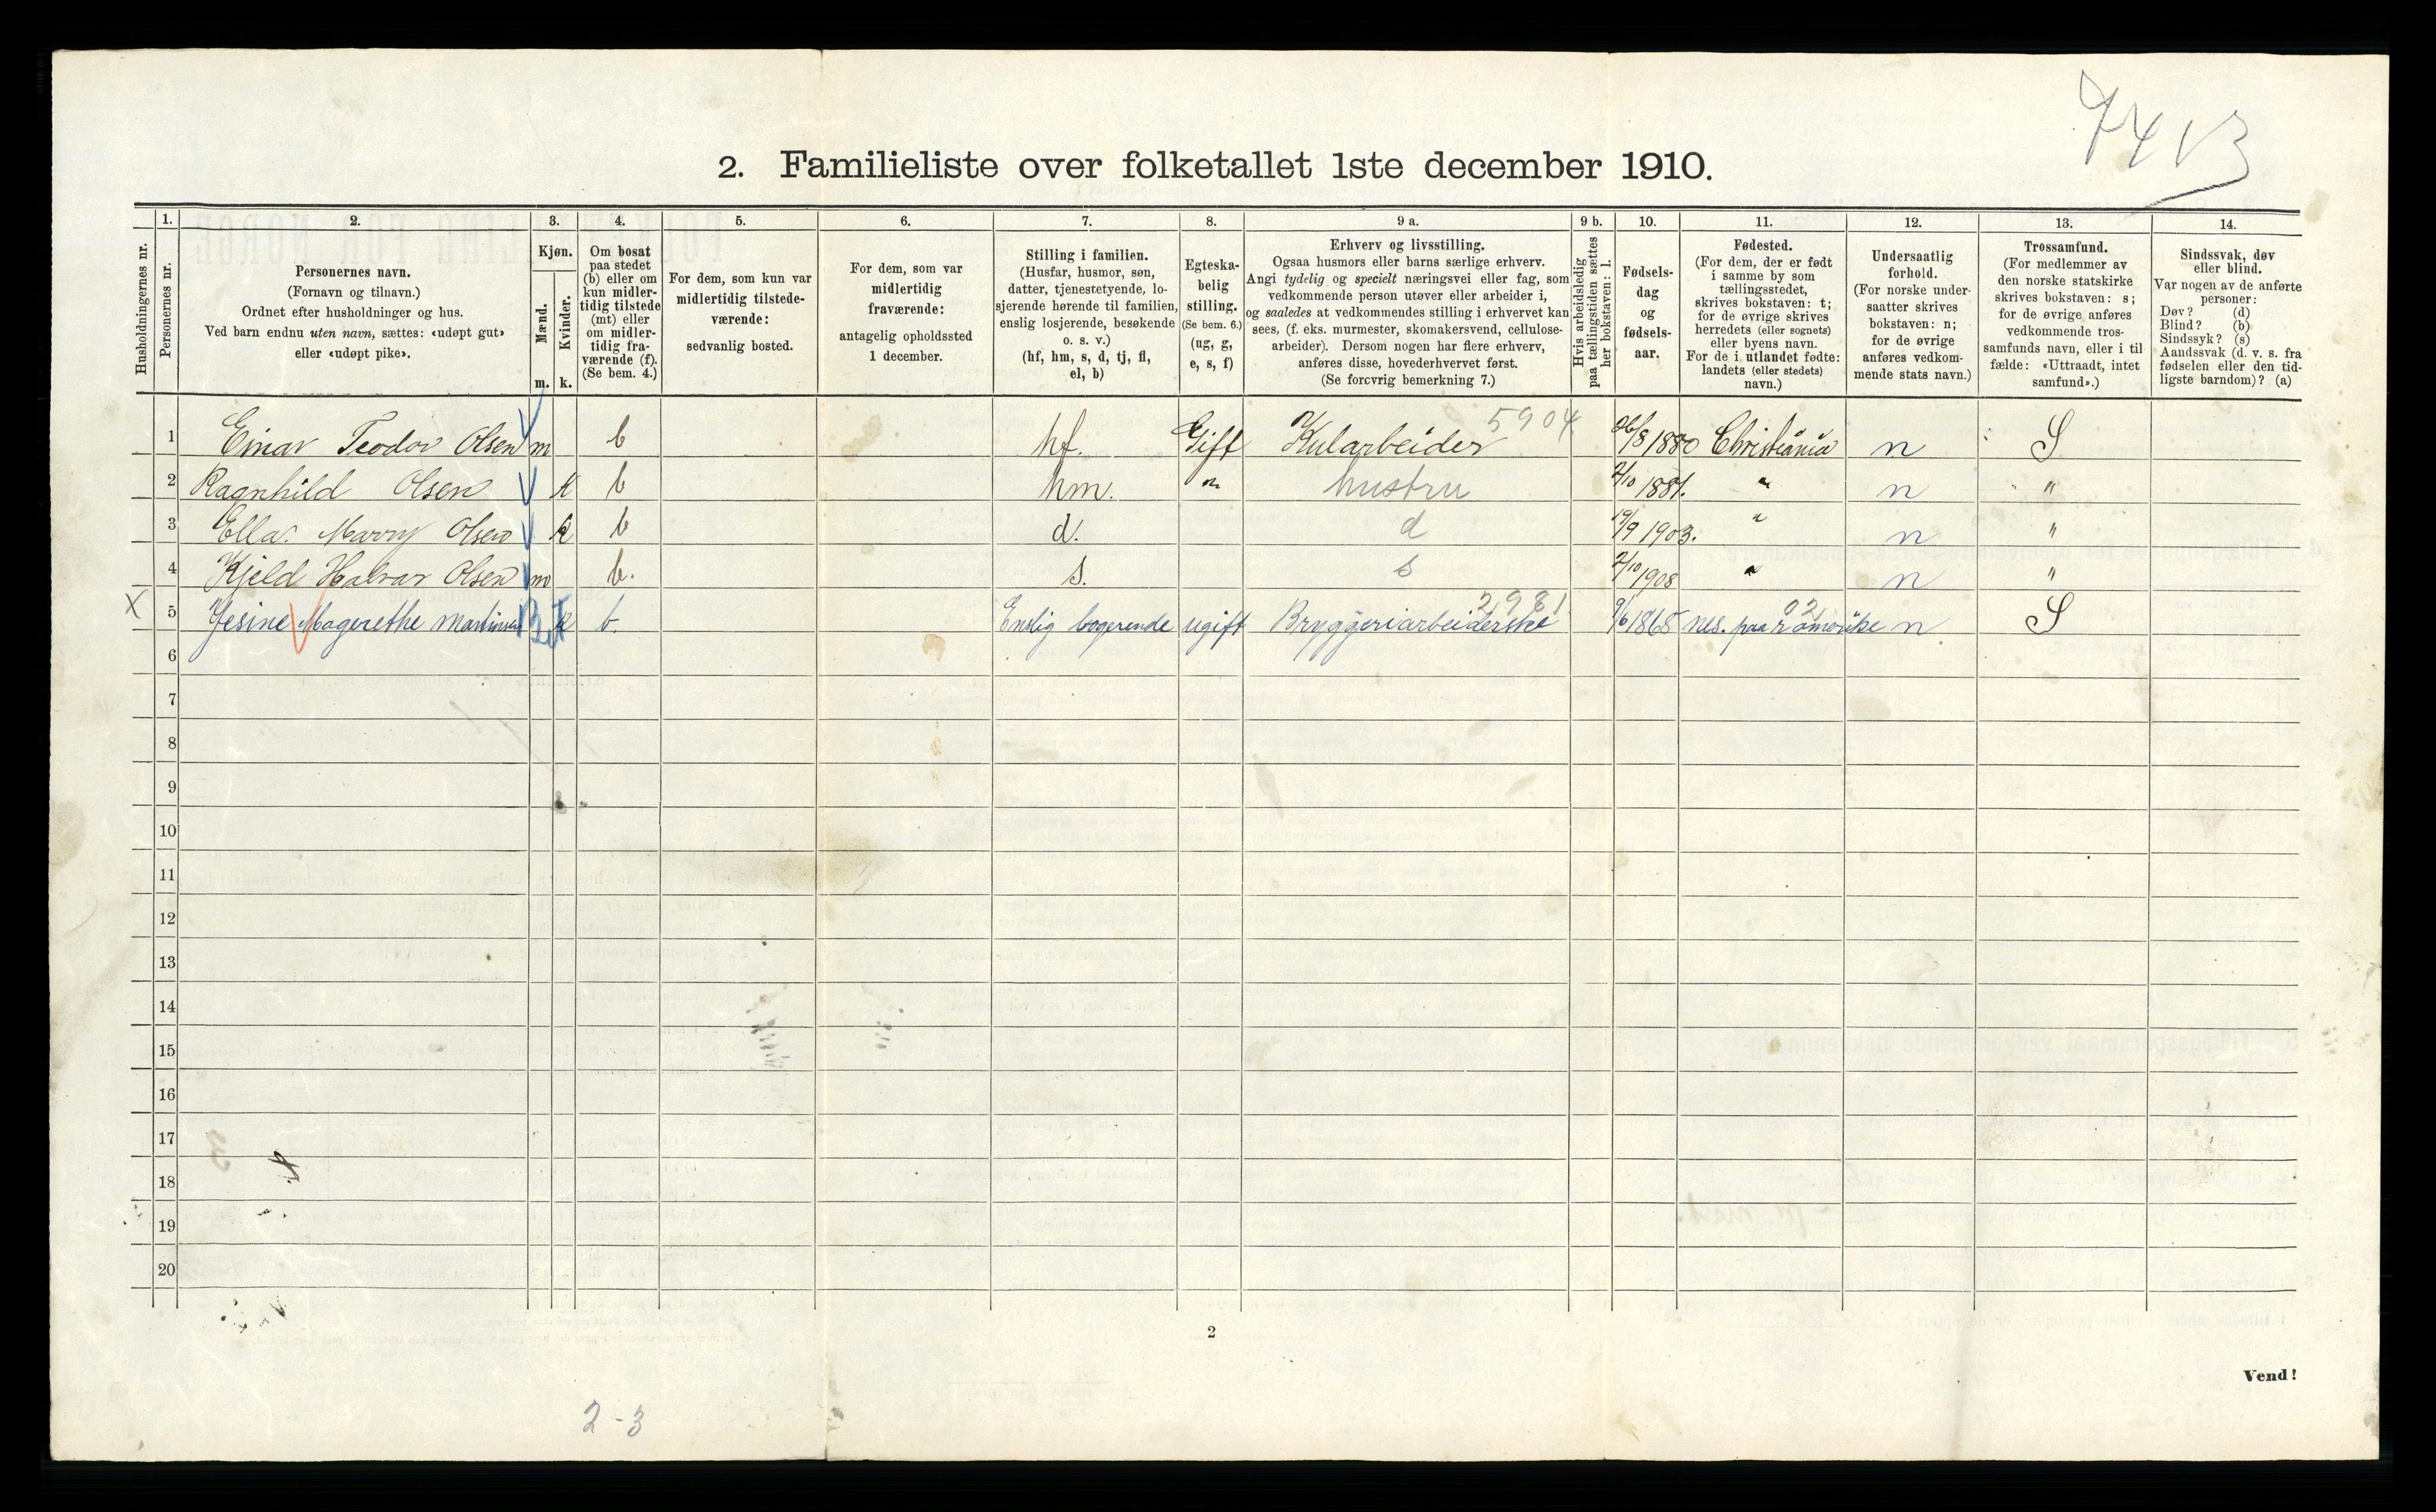 7413
2. Familieliste over folketallet 1ste december 1910.
Husholdningernes nr.
1.
Personernes nr.
2.
Personernes navn.
(Fornavn og tilnavn.)
Ordnet efter husholdninger og hus.
Ved barn endnu uten navn, sættes: «udøpt gut»
eller «udøpt pike».
3.
Kjøn.
Mænd.
Kvinder.
m. k.
4.
Om bosat
paa stedet
(b) eller om
kun midler-
tidig tilstede
(mt) eller
om midler-
tidig fra-
værende (f).
(Se bem. 4.)
5.
For dem, som kun var
midlertidig tilstede-
værende:
sedvanlig bosted.
6.
For dem, som var
midlertidig
fraværende:
antagelig opholdssted
1 december.
7.
Stilling i familien.
(Husfar, husmor, søn,
datter, tjenestetyende, lo-
sjerende hørende til familien,
enslig losjerende, besøkende
o. s. v.)
(hf, hm, s, d, tj, fl,
el, b)
8.
Egteska-
belig
stilling.
(Se bem. 6.)
(ug, g,
e, s, f)
9 a.
Erhverv og livsstilling.
Ogsaa husmors eller barns særlige erhverv.
Angi tydelig og specielt næringsvei eller fag, som
vedkommende person utøver eller arbeider i,
og saaledes at vedkommendes stilling i erhvervet kan
sees, (f. eks. murmester, skomakersvend, cellulose-
arbeider). Dersom nogen har flere erhverv,
anføres disse, hovederhvervet først.
(Se forøvrig bemerkning 7.)
9 b.
Hvis arbeidsledig
paa tællingstiden sættes
her bokstaven: l.
10.
Fødsels-
dag
og
fødsels-
aar.
11.
Fødested.
(For dem, der er født
i samme by som
tællingsstedet,
skrives bokstaven: t;
for de øvrige skrives
herredets (eller sognets)
eller byens navn.
For de i utlandet fødte:
landets (eller stedets)
navn.)
12.
Undersaatlig
forhold.
(For norske under-
saatter skrives
bokstaven: n;
for de øvrige
anføres vedkom-
mende stats navn.)
13.
Trossamfund.
(For medlemmer av
den norske statskirke
skrives bokstaven: s;
for de øvrige anføres
vedkommende tros-
samfunds navn, eller i til-
fælde: «Uttraadt, intet
samfund».)
14.
Sindssvak, døv
eller blind.
Var nogen av de anførte
personer:
Døv? (d)
Blind? (b)
Sindssyk? (s)
Aandssvak (d. v. s. fra
fødselen eller den tid-
ligste barndom)? (a)
5904
1 Einar Teodor Olsen m b hf. Gift Kularbeider 26/8 1880 Christiania n S
2 Ragnhild Olsen k b hm. " hustru 2/10 1881. " n "
3 Ella Marry Olsen k b d. d 19/9 1903. " n "
4 Kjeld Halvar Olsen m b. s. s 2/10 1908 " n "
2981 02
X 5 Jesine Magrethe Martinsen k b. Enslig bogerende ugift Bryggeriarbeiderske 9/6 1865 nes. paa romerike n S
6
7
8
9
10
11
12
13
14
15
16
17
18
19
20
2
Vend!
2-3